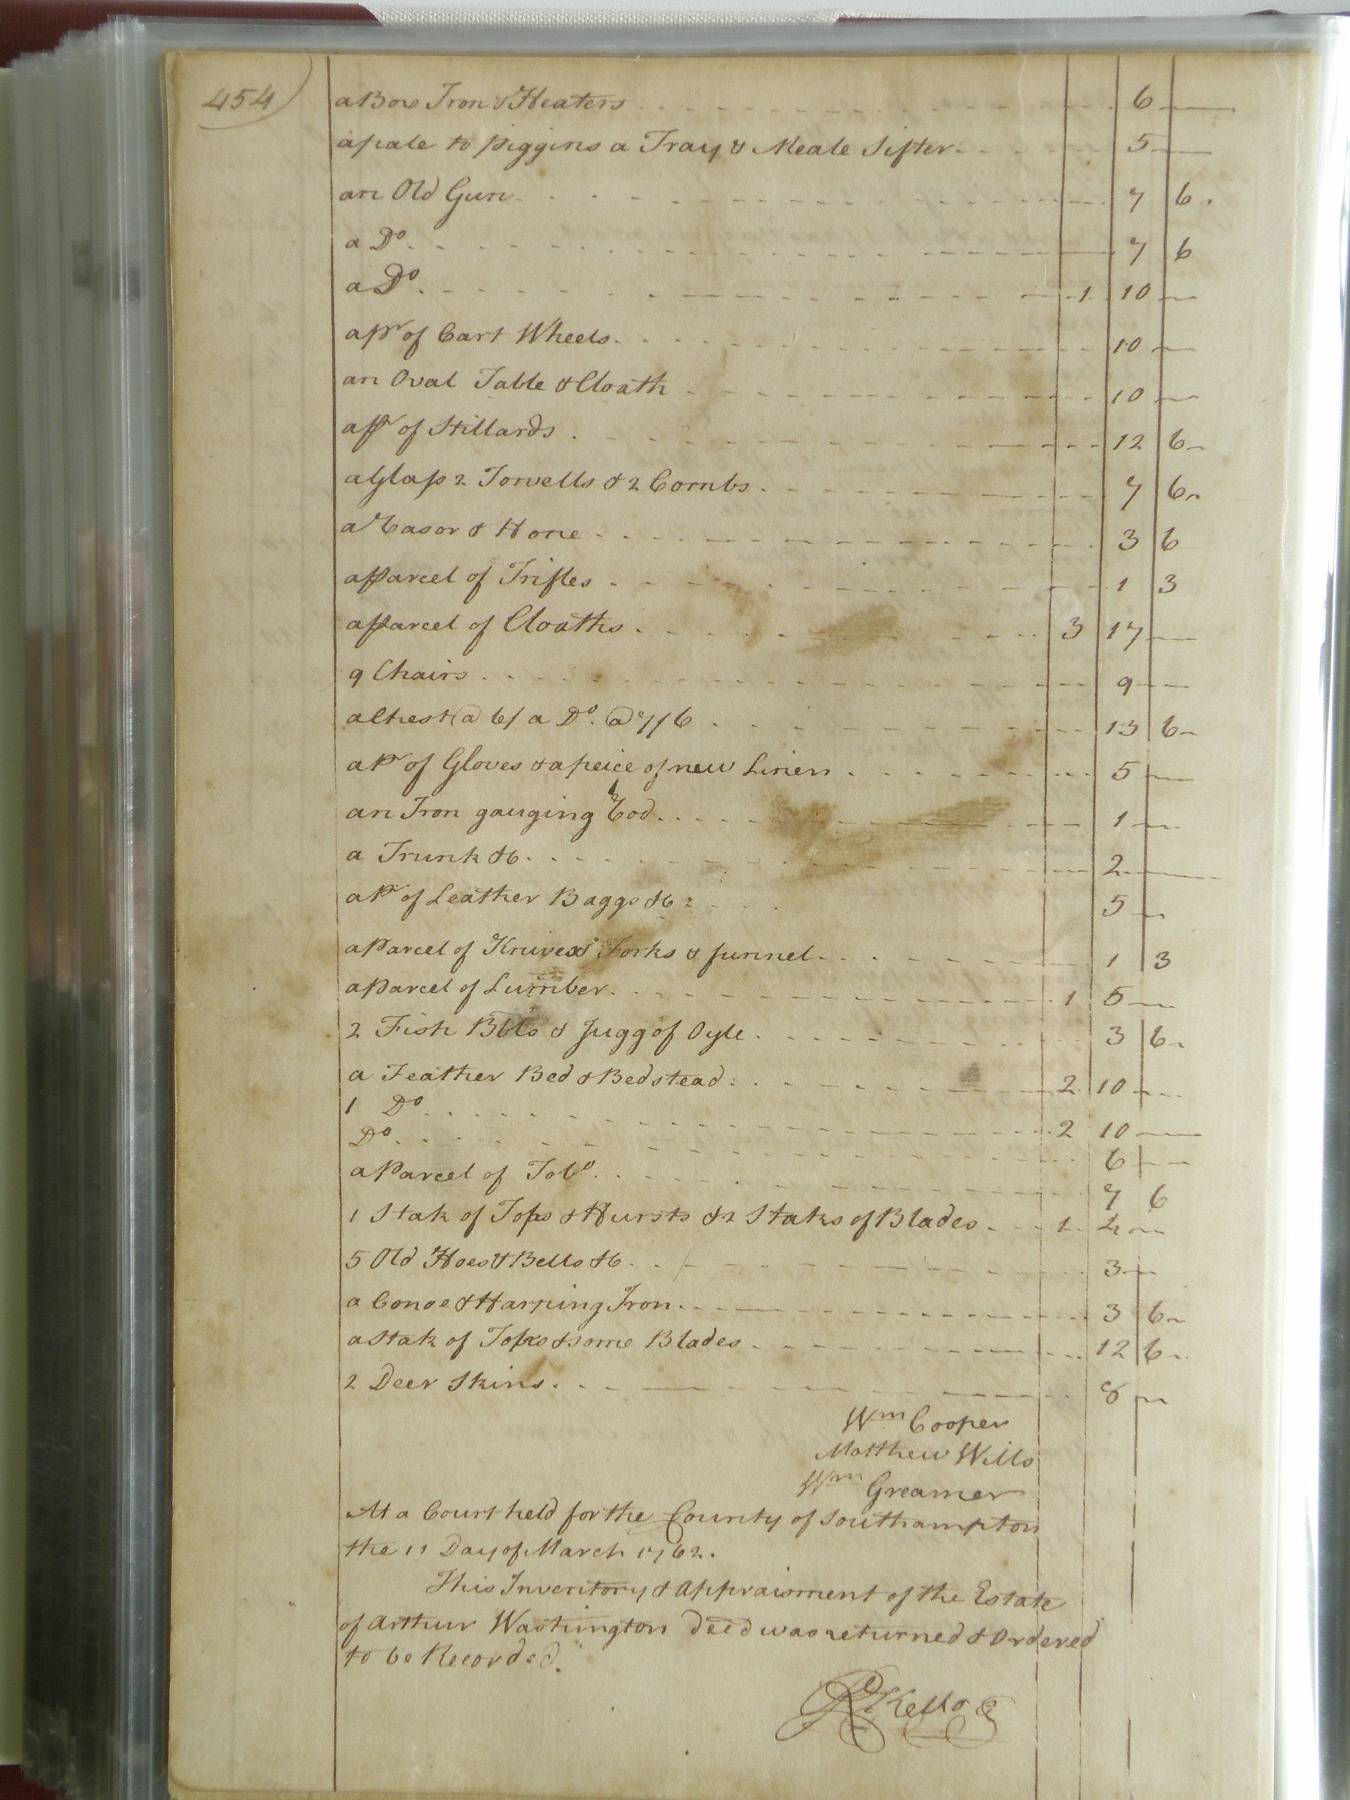 454
a Box Iron & Heaters 6
a pale to piggins a Tray & Meale Sifter 5
an Old Gun 7 6
a Do 7 6
a Do 1 10
a pr of Cart Wheels 10
an Oval Table & Cloath 10
a pr of Stillards 12 6
a Glass 2 Towells & 2 Combs 7 6
a Rasor & Hone 3 6
a parcel of Trifles 1 3
a parcel of Cloaths 3 17
9 Chairs 9
a Chest @ 6/ a Do. @ 7/6 13 6
a Pr of Gloves & a peice of new Linen 5
an Iron gauging Rod 1
a Trunk &c 2
a Pr of Leather Baggs &c 5
a Parcel of Knives & Forks & funnel 1 3
a Parcel of Lumber 1 5
2 Fish Bbls & Jugg of Oyle 3 6
a Feather Bed & Bedstead 2 10
1 Do 2 10
Do 6
a Parcel of Tobo 7 6
1 Stak of Tops & Hursts & 2 Staks of Blades 1 4
5 Old Hoes & Bells &c 3
a Conoe & Harping Iron 3 6
a Stak of Tops & some Blades 12 6
2 Deer Skins 8
Wm Cooper
Matthew Wills
Wm Greamer
At a Court held for the County of Southampton
the 11 Day of March 1762.
This Inventory & Appraisment of the Estate
of Arthur Washington Decd was returned & Ordered
to be Recorded.
R Kello